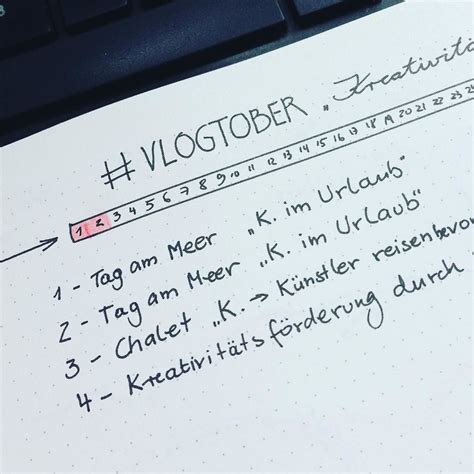 # VLOGTOBER „Kreativitä
1 2 3 4 5 6 7 8 9 10 11 12 13 14 15 16 17 18 19 20 21 22 23
1 - Tag am Meer „K. im Urlaub"
2 - Tag am Meer „K. im Urlaub"
3 - Chalet „K. → Künstler reisenbevo
4 - Kreativitätsförderung durch